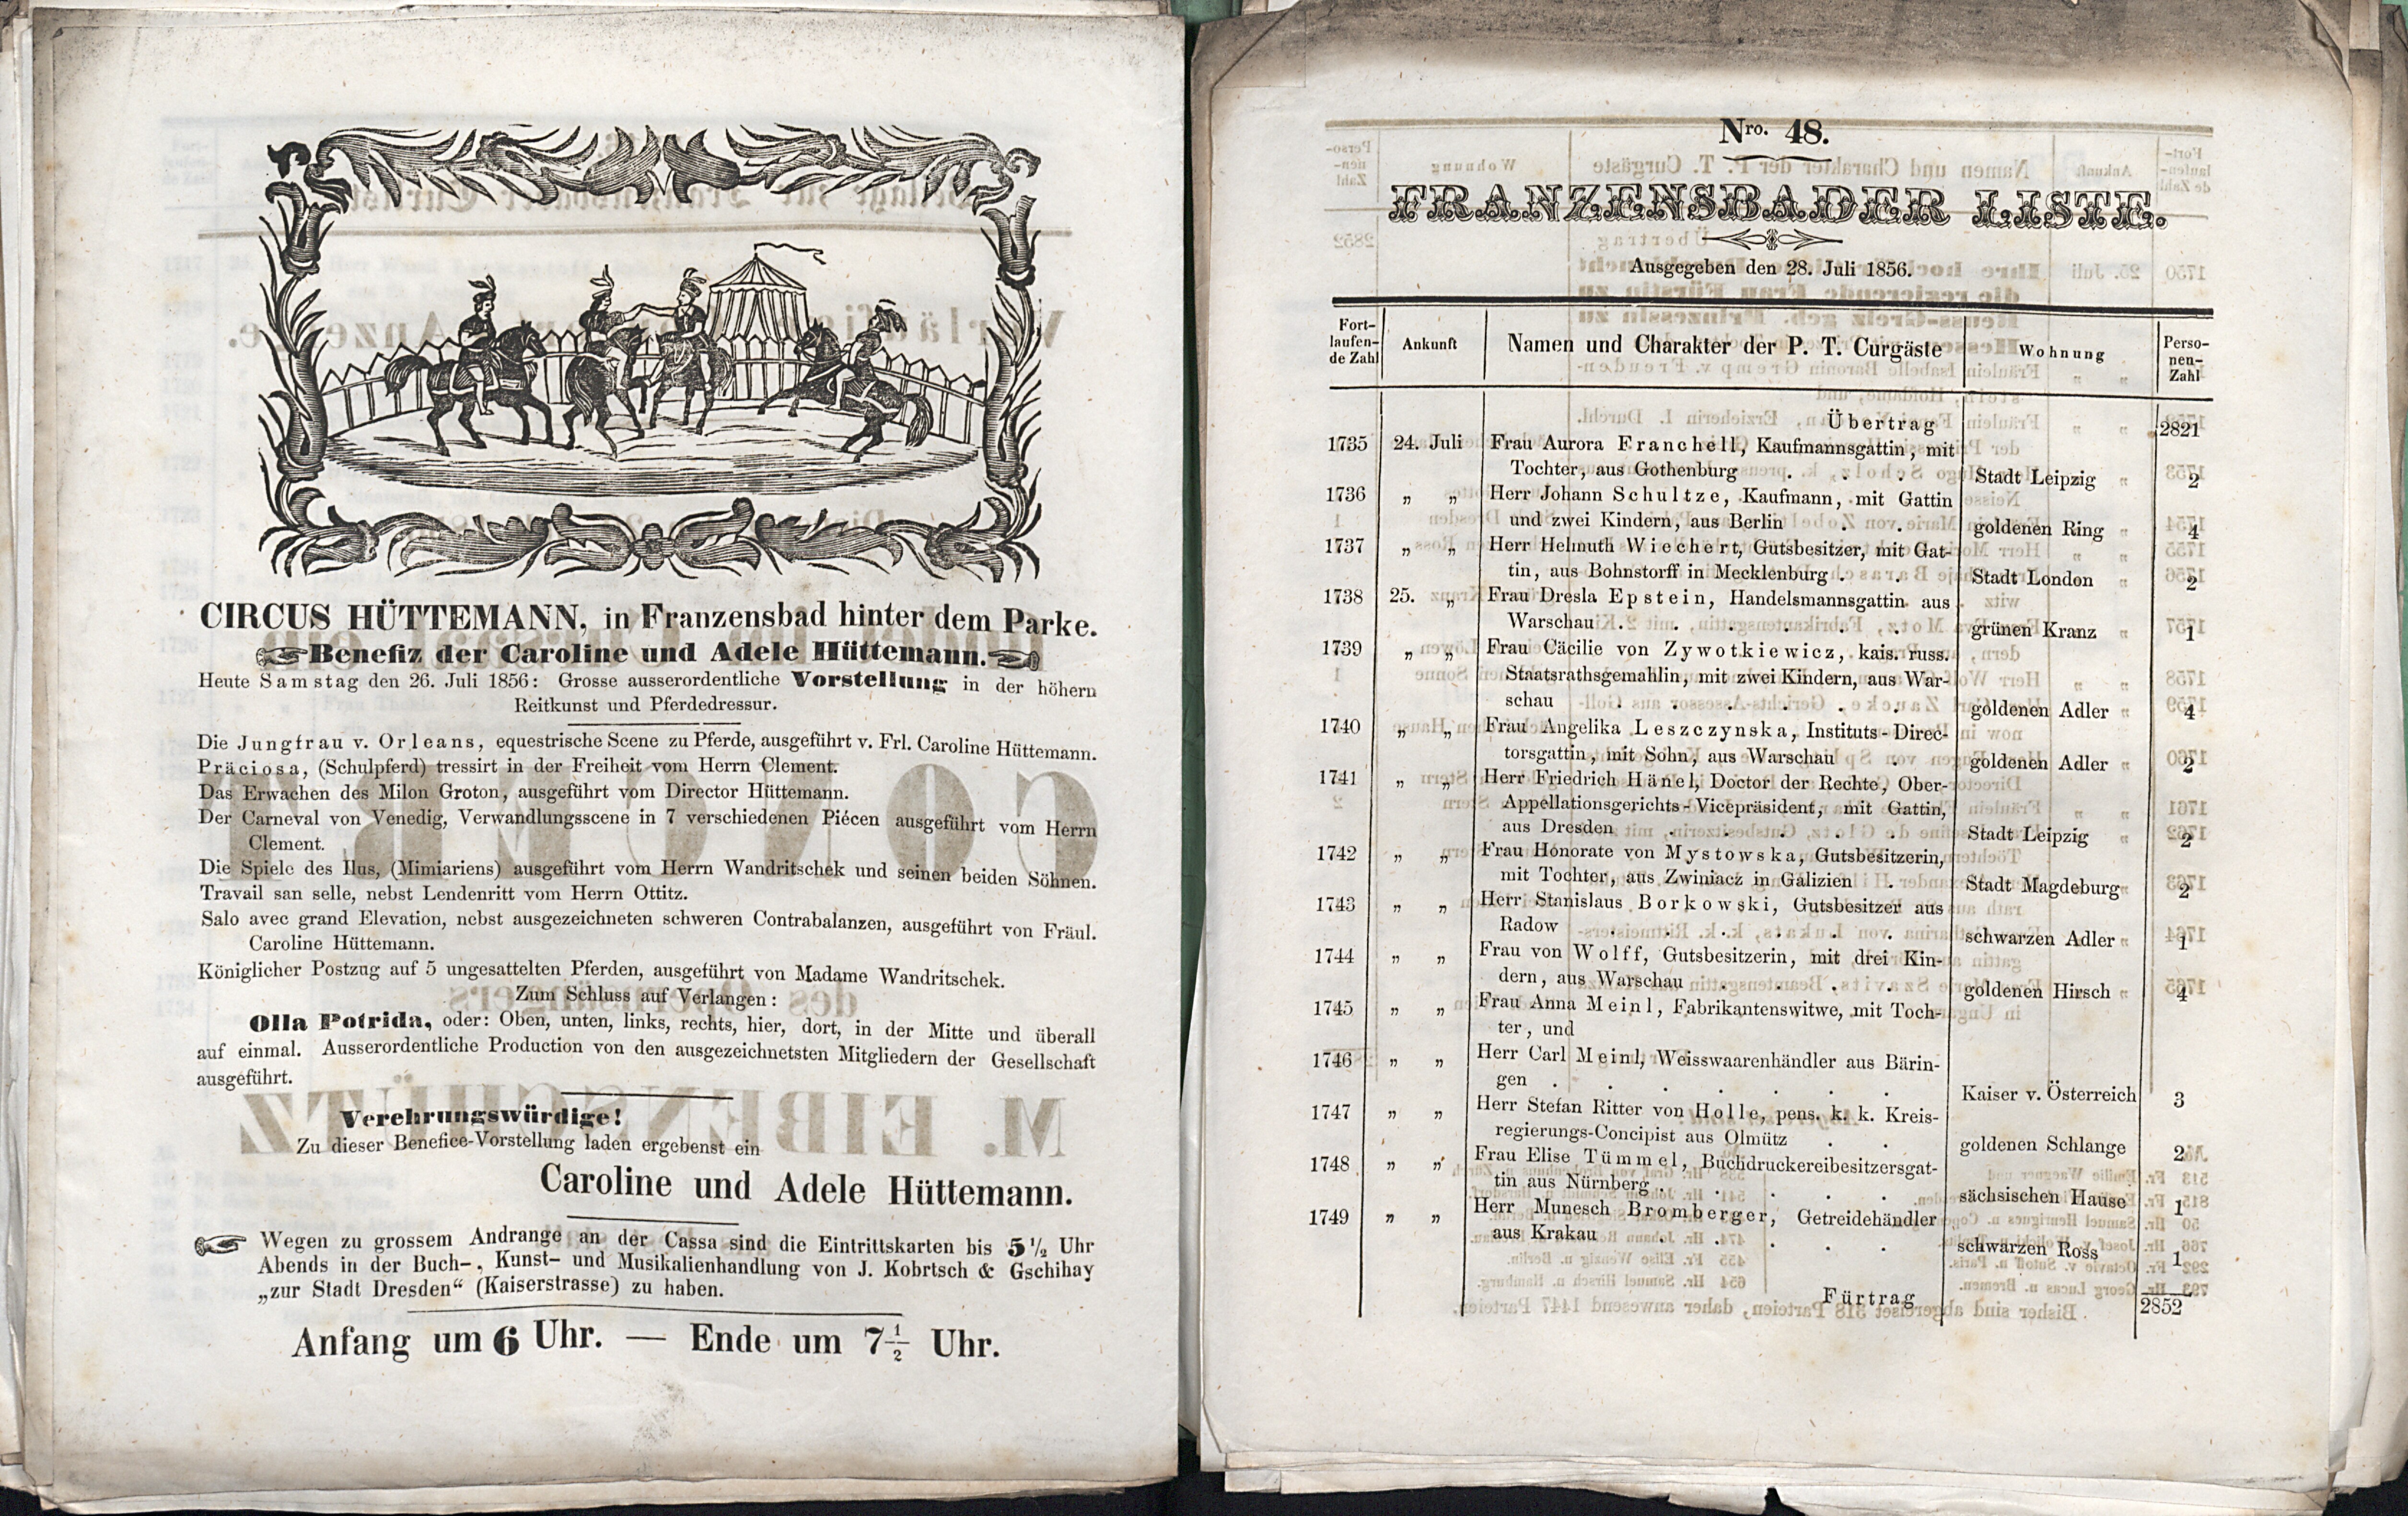 CIRCUS HÜTTEMANN, in Franzensbad hinter dem Parke.
Benefiz der Caroline und Adele Hüttemann.
Heute Samstag den 26. Juli 1856: Grosse ausserordentliche Vorstellung in der höhern
Reitkunst und Pferdedressur.
Die Jungfrau v. Orleans, equestrische Scene zu Pferde, ausgeführt v. Frl. Caroline Hüttemann.
Präciosa, (Schulpferd) tressirt in der Freiheit vom Herrn Clement.
Das Erwachen des Milon Groton, ausgeführt vom Director Hüttemann.
Der Carneval von Venedig, Verwandlungsscene in 7 verschiedenen Piécen ausgeführt vom Herrn
Clement.
Die Spiele des Ilus, (Mimiariens) ausgeführt vom Herrn Wandritschek und seinen beiden Söhnen.
Travail san selle, nebst Lendenritt vom Herrn Ottitz.
Salo avec grand Elevation, nebst ausgezeichneten schweren Contrabalanzen, ausgeführt von Fräul.
Caroline Hüttemann.
Königlicher Postzug auf 5 ungesattelten Pferden, ausgeführt von Madame Wandritschek.
Zum Schluss auf Verlangen:
Olla Potrida, oder: Oben, unten, links, rechts, hier, dort, in der Mitte und überall
auf einmal. Ausserordentliche Production von den ausgezeichnetsten Mitgliedern der Gesellschaft
ausgeführt.
Verehrungswürdige!
Zu dieser Benefice-Vorstellung laden ergebenst ein
Caroline und Adele Hüttemann.
Wegen zu grossem Andrange an der Cassa sind die Eintrittskarten bis 5 1/2 Uhr
Abends in der Buch-, Kunst- und Musikalienhandlung von J. Kobrtsch & Gschihay
„zur Stadt Dresden“ (Kaiserstrasse) zu haben.
Anfang um 6 Uhr. — Ende um 7 1/2 Uhr.
Nro. 48.
FRANZENSBADER LISTE.
Ausgegeben den 28. Juli 1856.
Fort-
laufen-
de Zahl Ankunft Namen und Charakter der P. T. Curgäste Wohnung Perso-
nen-
Zahl
Übertrag 2821
1735 24. Juli Frau Aurora Franchell, Kaufmannsgattin, mit
Tochter, aus Gothenburg . . . Stadt Leipzig 2
1736 „ „ Herr Johann Schultze, Kaufmann, mit Gattin
und zwei Kindern, aus Berlin . . goldenen Ring 4
1737 „ „ Herr Helmuth Wiechert, Gutsbesitzer, mit Gat-
tin, aus Bohnstorff in Mecklenburg . . Stadt London 2
1738 25. „ Frau Dresla Epstein, Handelsmannsgattin aus
Warschau . . . . . . grünen Kranz 1
1739 „ „ Frau Cäcilie von Zywotkiewicz, kais. russ.
Staatsrathsgemahlin, mit zwei Kindern, aus War-
schau . . . . . . goldenen Adler 4
1740 „ „ Frau Angelika Leszczynska, Instituts-Direc-
torsgattin, mit Sohn, aus Warschau . goldenen Adler 2
1741 „ „ Herr Friedrich Hänel, Doctor der Rechte, Ober-
Appellationsgerichts-Vicepräsident, mit Gattin,
aus Dresden . . . . . Stadt Leipzig 2
1742 „ „ Frau Honorate von Mystowska, Gutsbesitzerin,
mit Tochter, aus Zwiniacz in Galizien . Stadt Magdeburg 2
1743 „ „ Herr Stanislaus Borkowski, Gutsbesitzer aus
Radow . . . . . . schwarzen Adler 1
1744 „ „ Frau von Wolff, Gutsbesitzerin, mit drei Kin-
dern, aus Warschau . . . goldenen Hirsch 4
1745 „ „ Frau Anna Meinl, Fabrikantenswitwe, mit Toch-
ter, und
1746 „ „ Herr Carl Meinl, Weisswaarenhändler aus Bärin-
gen . . . . . . . Kaiser v. Österreich 3
1747 „ „ Herr Stefan Ritter von Holle, pens. k. k. Kreis-
regierungs-Concipist aus Olmütz . . goldenen Schlange 2
1748 „ „ Frau Elise Tümmel, Buchdruckereibesitzersgat-
tin aus Nürnberg . . . . . sächsischen Hause 1
1749 „ „ Herr Munesch Bromberger, Getreidehändler
aus Krakau . . . . . schwarzen Ross 1
Fürtrag 2852